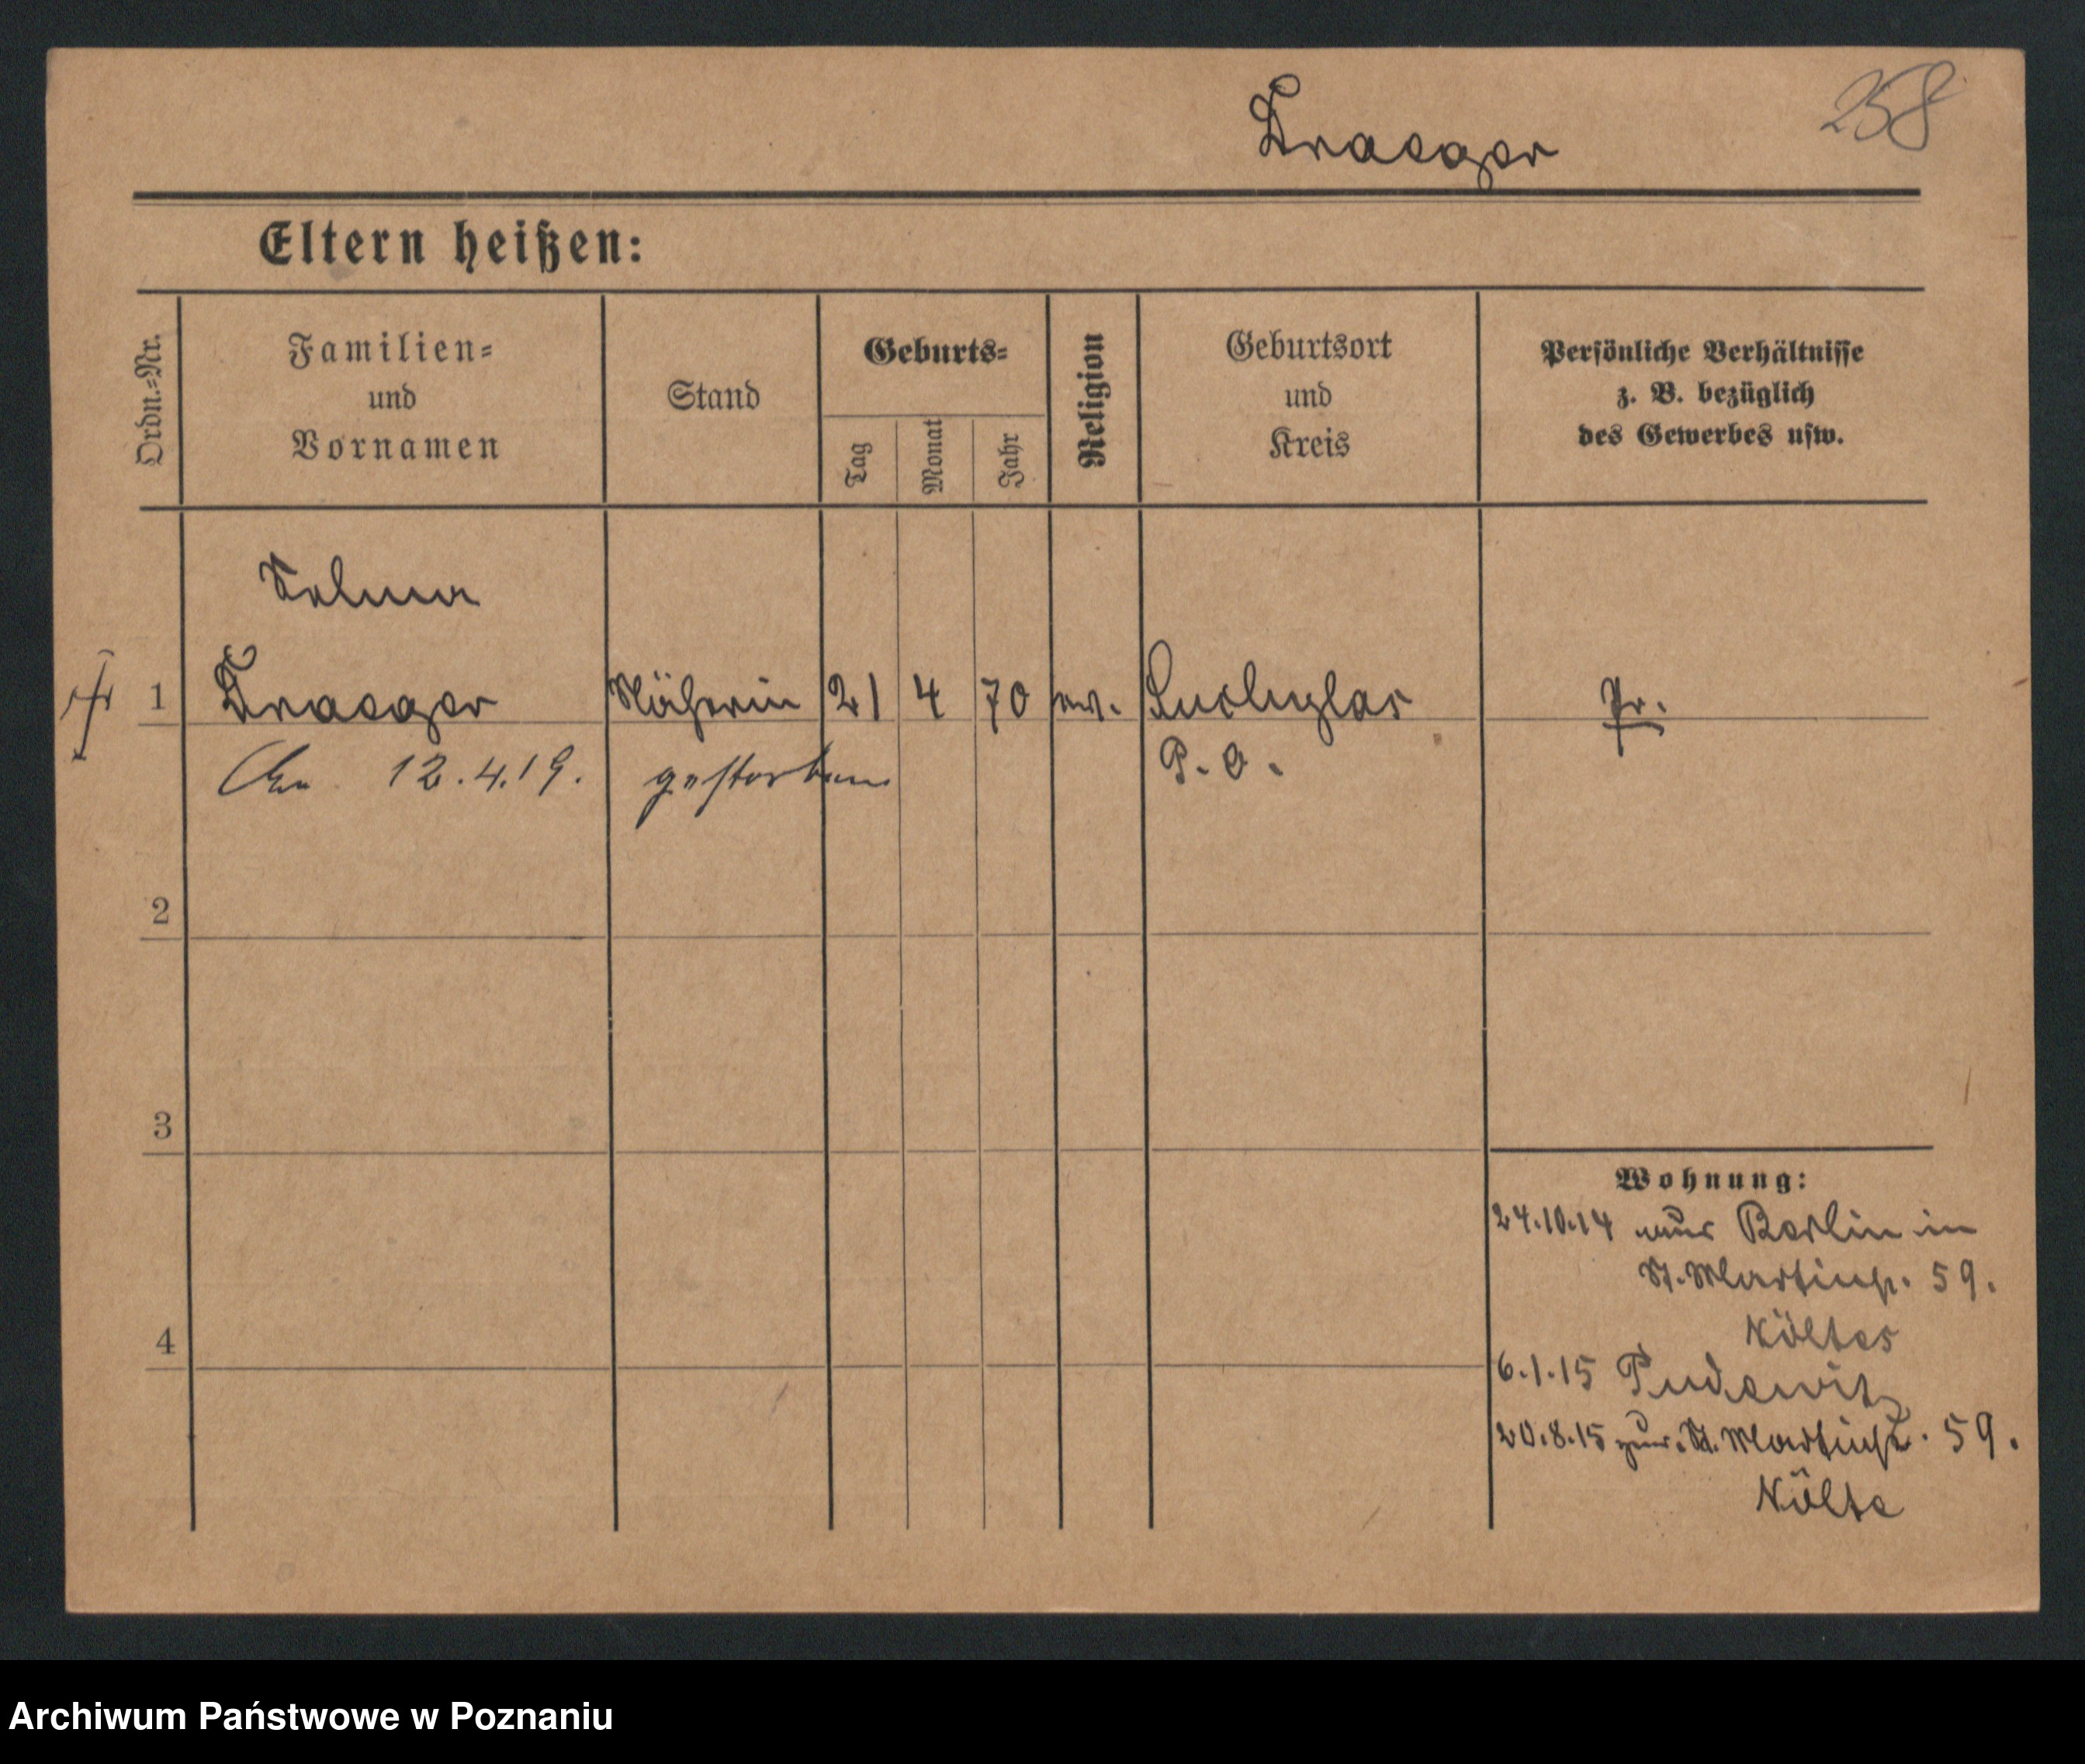 258
Draeger
Eltern heißen:
Ordn.-Nr.
Familien-
und
Vornamen
Stand
Geburts-
Tag
Monat
Jahr
Religion
Geburtsort
und
Kreis
Persönliche Verhältnisse
z. B. bezüglich
des Gewerbes usw.
Selma
1 Draeger Näherin 21 4 70 ev. Luchglas Pr.
P. O.
Am 12.4.19. gestorben
2
3
4
Wohnung:
24.10.14 aus Berlin in
St. Martinstr. 59.
Nölter
6.1.15 Pudewitz
20.8.15 zur. St. Martinstr. 59.
Nölte
Archiwum Państwowe w Poznaniu